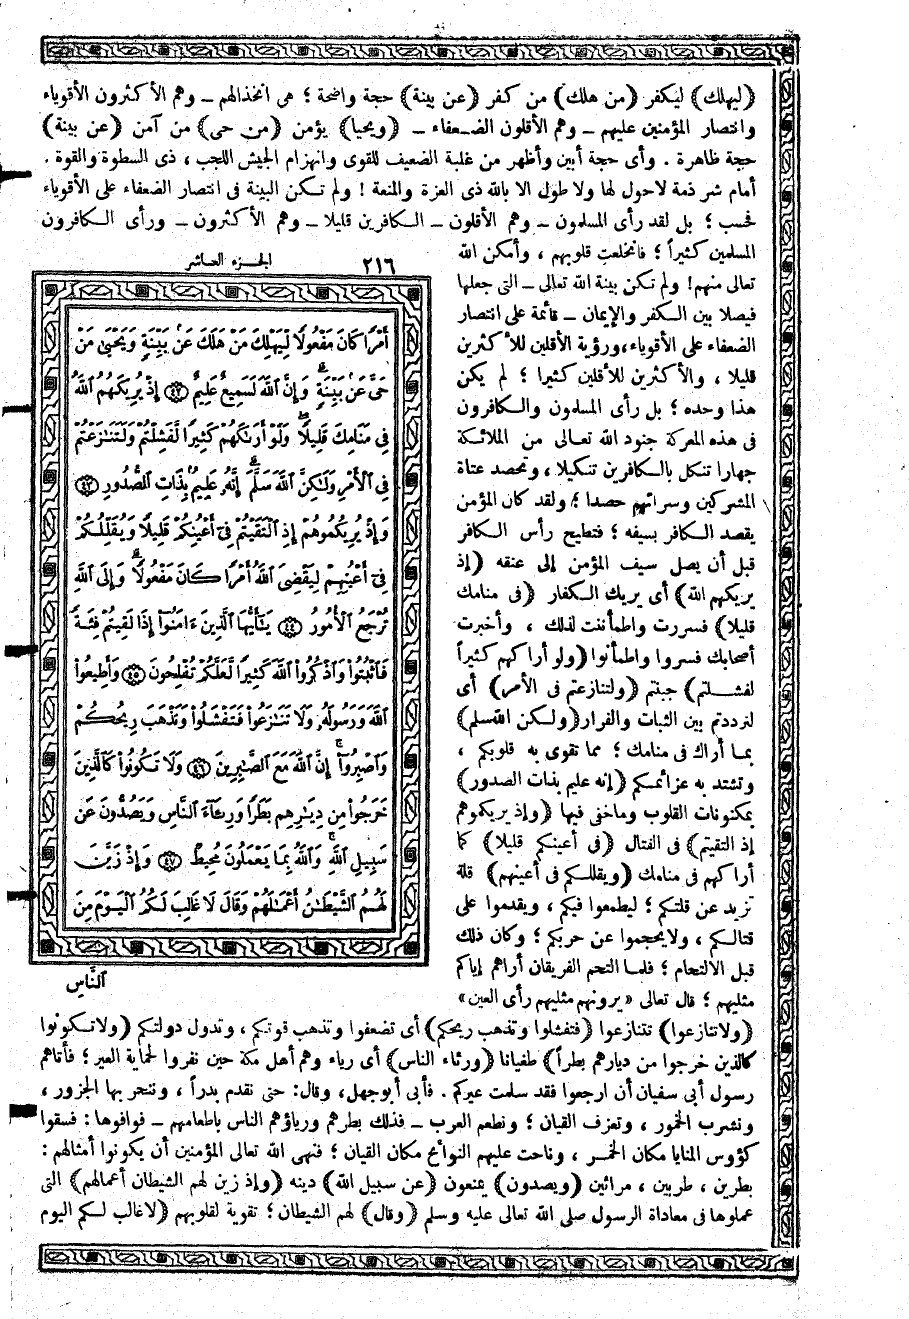 (ليهلك) ليكفر (من هلك) من كفر (عن بينة) حجة واضحة ؛ هى انخذالهم ــ وهم الأكثرون الأقوياء
وانتصار المؤمنين عليهم ــ وهم الأقلون الضعفاء ــ (ويحيا) يؤمن (من حى) من آمن (عن بينة)
حجة ظاهرة . وأى حجة أبين وأظهر من غلبة الضعيف للقوى وانهزام الجيش اللجب ، ذى السطوة والقوة .
أمام شرذمة لاحول لها ولا طول الا بالله ذى العزة والمنعة ! ولم تكن البينة فى انتصار الضعفاء على الأقوياء
فحسب ؛ بل لقد رأى المسلمون ــ وهم الأقلون ــ الكافرين قليلا ــ وهم الأكثرون ــ ورأى الكافرون
المسلمين كثيراً ؛ فانخلعت قلوبهم ، وأمكن الله
تعالى منهم! ولم تكن بينة الله تعالى ــ التى جعلها
فيصلا بين الكفر والإيمان ــ قائمة على انتصار
الضعفاء على الأقوياء، ورؤية الأقلين للأكثرين
قليلا ، والأكثرين للأقلين كثيرا ؛ لم يكن
هذا وحده ؛ بل رأى المسلمون والكافرون
فى هذه المعركة جنود الله تعالى من الملائكة
جهارا تنكل بالكافرين تنكيلا ، وتحصد عتاة
المشركين وسراتهم حصدا ؛ ولقد كان المؤمن
يقصد الكافر بسيفه ؛ فتطيح رأس الكافر
قبل أن يصل سيف المؤمن إلى عنقه (إذ
يريكهم الله) أى يريك الكفار (فى منامك
قليلا) فسررت واطمأننت لذلك ، وأخبرت
أصحابك فسروا واطمأنوا (ولو أراكهم كثيراً
لفشلتم) جبنتم (ولتنازعتم فى الأمر) أى
لترددتم بين الثبات والفرار (ولكن الله سلم)
بما أراك فى منامك ؛ مما تقوى به قلوبكم ،
وتشتد به عزائمكم (إنه عليم بذات الصدور)
بمكنونات القلوب وماخفى فيها (وإذ يريكموهم
إذ التقيتم) فى القتال (فى أعينكم قليلا) كما
أراكهم فى منامك (ويقللكم فى أعينهم) قلة
تزيد عن قلتكم ؛ ليطمعوا فيكم ، ويقدموا على
قتالكم ، ولا يحجموا عن حربكم ؛ وكان ذلك
قبل الالتحام ؛ فلما التحم الفريقان أراهم إياكم
مثليهم ؛ قال تعالى «يرونهم مثليهم رأى العين»
٢١٦ الجزء العاشر
أَمْرًا كَانَ مَفْعُولًا لِّيَهْلِكَ مَنْ هَلَكَ عَنۢ بَيِّنَةٍ وَيَحْيَىٰ مَنْ
حَىَّ عَنۢ بَيِّنَةٍ ۗ وَإِنَّ ٱللَّهَ لَسَمِيعٌ عَلِيمٌ ﴿٤٢﴾ إِذْ يُرِيكَهُمُ ٱللَّهُ
فِى مَنَامِكَ قَلِيلًا ۖ وَلَوْ أَرَىٰكَهُمْ كَثِيرًا لَّفَشِلْتُمْ وَلَتَنَـٰزَعْتُمْ
فِى ٱلْأَمْرِ وَلَـٰكِنَّ ٱللَّهَ سَلَّمَ ۗ إِنَّهُۥ عَلِيمٌۢ بِذَاتِ ٱلصُّدُورِ ﴿٤٣﴾
وَإِذْ يُرِيكُمُوهُمْ إِذِ ٱلْتَقَيْتُمْ فِىٓ أَعْيُنِكُمْ قَلِيلًا وَيُقَلِّلُكُمْ
فِىٓ أَعْيُنِهِمْ لِيَقْضِىَ ٱللَّهُ أَمْرًا كَانَ مَفْعُولًا ۗ وَإِلَى ٱللَّهِ
تُرْجَعُ ٱلْأُمُورُ ﴿٤٤﴾ يَـٰٓأَيُّهَا ٱلَّذِينَ ءَامَنُوٓا۟ إِذَا لَقِيتُمْ فِئَةً
فَٱثْبُتُوا۟ وَٱذْكُرُوا۟ ٱللَّهَ كَثِيرًا لَّعَلَّكُمْ تُفْلِحُونَ ﴿٤٥﴾ وَأَطِيعُوا۟
ٱللَّهَ وَرَسُولَهُۥ وَلَا تَنَـٰزَعُوا۟ فَتَفْشَلُوا۟ وَتَذْهَبَ رِيحُكُمْ
وَٱصْبِرُوٓا۟ ۚ إِنَّ ٱللَّهَ مَعَ ٱلصَّـٰبِرِينَ ﴿٤٦﴾ وَلَا تَكُونُوا۟ كَٱلَّذِينَ
خَرَجُوا۟ مِن دِيَـٰرِهِم بَطَرًا وَرِئَآءَ ٱلنَّاسِ وَيَصُدُّونَ عَن
سَبِيلِ ٱللَّهِ ۚ وَٱللَّهُ بِمَا يَعْمَلُونَ مُحِيطٌ ﴿٤٧﴾ وَإِذْ زَيَّنَ
لَهُمُ ٱلشَّيْطَـٰنُ أَعْمَـٰلَهُمْ وَقَالَ لَا غَالِبَ لَكُمُ ٱلْيَوْمَ مِنَ
ٱلنَّاسِ
(ولا تنازعوا) تتنازعوا (فتفشلوا وتذهب ريحكم) أى تضعفوا وتذهب قوتكم ، وتدول دولتكم (ولاتكونوا
كالذين خرجوا من ديارهم بطراً) طغيانا (ورئاء الناس) أى رياء وهم أهل مكة حين نفروا لحماية العير ؛ فأتاهم
رسول أبى سفيان أن ارجعوا فقد سلمت عيركم . فأبى أبوجهل، وقال: حتى نقدم بدراً ، وننحر بها الجزور ،
ونشرب الخمور ، وتعزف القيان ؛ ونطعم العرب ــ فذلك بطرهم ورياؤهم الناس باطعامهم ــ فوافوها: فسقوا
كؤوس المنايا مكان الخمر ، وناحت عليهم النوائح مكان القيان ؛ فنهى الله تعالى المؤمنين أن يكونوا أمثالهم:
بطرين ، طربين ، مرائين (ويصدون) يمنعون (عن سبيل الله) دينه (وإذ زين لهم الشيطان أعمالهم) التى
عملوها فى معاداة الرسول صلى الله تعالى عليه وسلم (وقال) لهم الشيطان ؛ تقوية لقلوبهم (لاغالب لكم اليوم